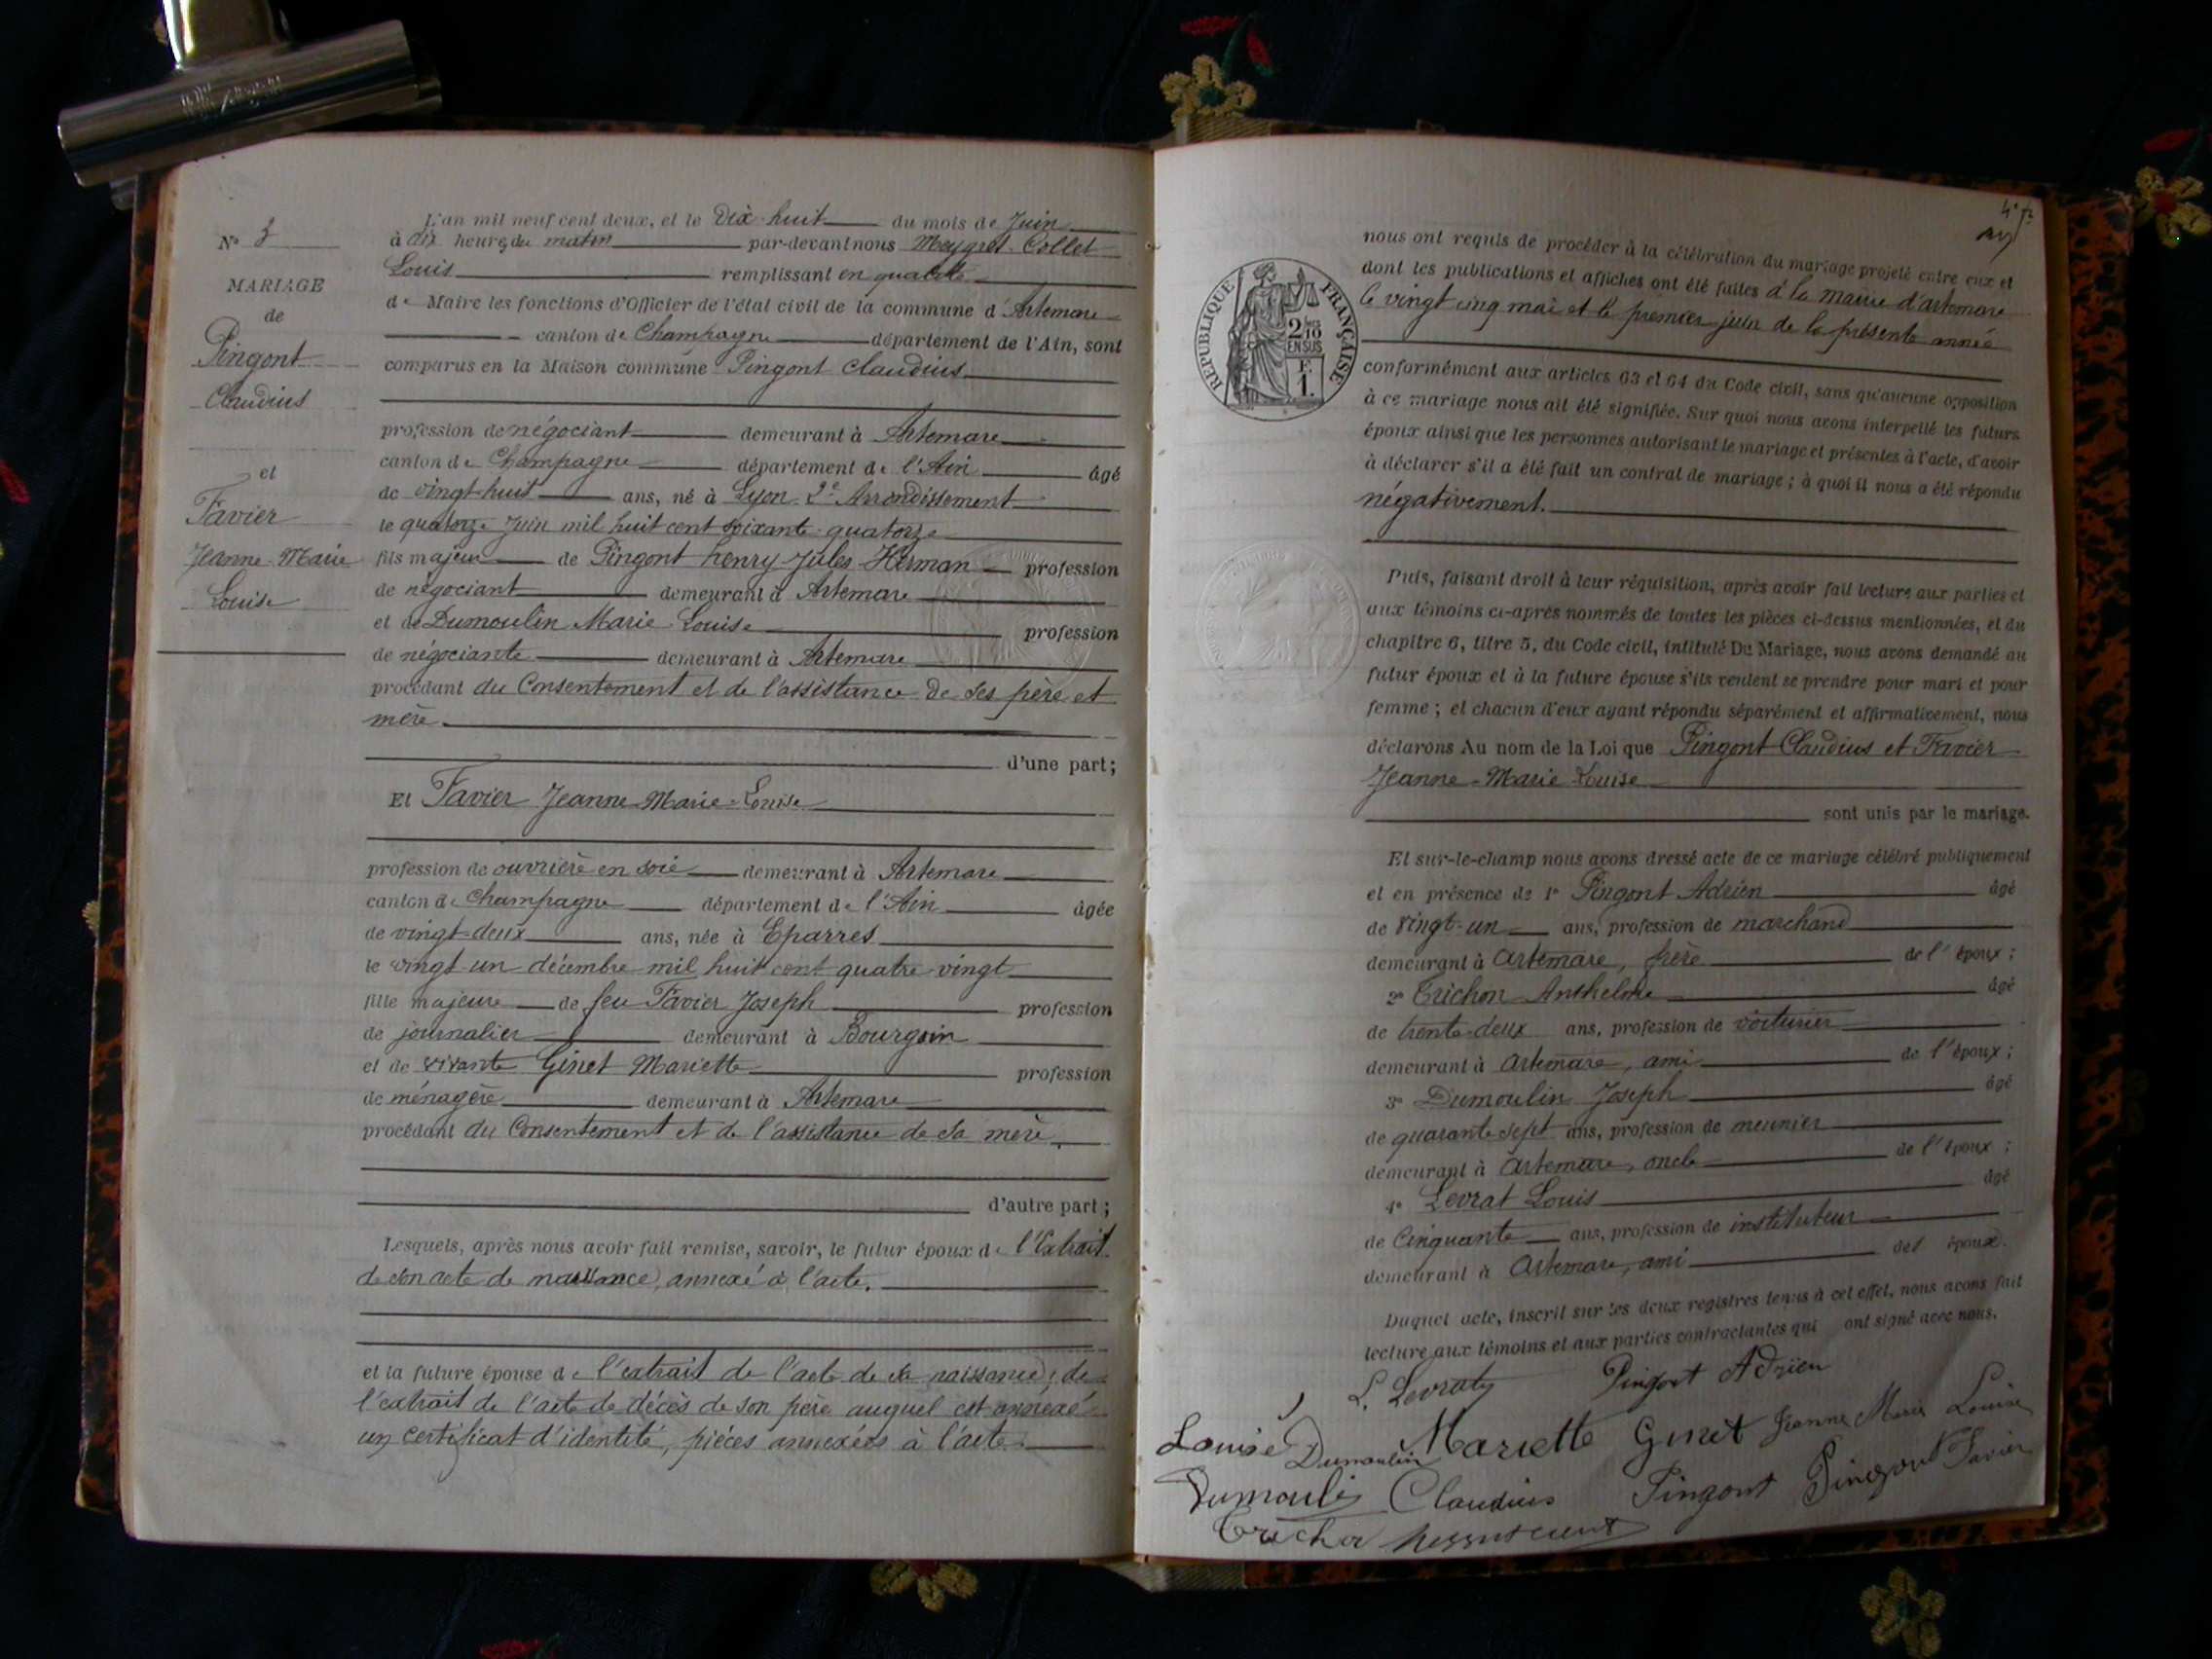 N° 3
MARIAGE
de
Pingont
Claudius
et
Favier
Jeanne-Marie
Louise
L'an mil neuf cent deux, et le Dix-huit du mois de Juin
à dix heures du matin par-devant nous Meygret-Collet
Louis remplissant en qualité
de Maire les fonctions d'Officier de l'état civil de la commune d'Artemare
canton de Champagne département de l'Ain, sont
comparus en la Maison commune Pingont Claudius
profession de négociant demeurant à Artemare
canton de Champagne département de l'Ain âgé
de vingt-huit ans, né à Lyon 2e Arrondissement
le quatorze Juin mil huit cent soixante-quatorze
fils majeur de Pingont henry-Jules-Herman profession
de négociant demeurant à Artemare
et de Dumoulin Marie-Louise profession
de négociante demeurant à Artemare
procédant du Consentement et de l'assistance de ses père et
mère.
d'une part;
Et Favier Jeanne-Marie-Louise
profession de ouvrière en soie demeurant à Artemare
canton de Champagne département de l'Ain âgée
de vingt-deux ans, née à Eparres
le vingt un décembre mil huit cent quatre-vingt
fille majeure de feu Favier Joseph profession
de journalier demeurant à Bourgoin
et de vivante Ginet Mariette profession
de ménagère demeurant à Artemare
procédant du Consentement et de l'assistance de sa mère.
d'autre part;
Lesquels, après nous avoir fait remise, savoir, le futur époux de l'Extrait
de son acte de naissance, annexé à l'acte.
et la future épouse de l'extrait de l'acte de sa naissance; de
l'extrait de l'acte de décès de son père auquel est annexé
un certificat d'identité, pièces annexées à l'acte.
nous ont requis de procéder à la célébration du mariage projeté entre eux et
dont les publications et affiches ont été faites à la mairie d'artemare
le vingt cinq mai et le premier juin de la présente année
RÉPUBLIQUE FRANÇAISE
2/10
EN SUS
F.
1.
conformément aux articles 63 et 64 du Code civil, sans qu'aucune opposition
à ce mariage nous ait été signifiée. Sur quoi nous avons interpellé les futurs
époux ainsi que les personnes autorisant le mariage et présentes à l'acte, d'avoir
à déclarer s'il a été fait un contrat de mariage; à quoi il nous a été répondu
négativement.
Puis, faisant droit à leur réquisition, après avoir fait lecture aux parties et
aux témoins ci-après nommés de toutes les pièces ci-dessus mentionnées, et du
chapitre 6, titre 5, du Code civil, intitulé Du Mariage, nous avons demandé au
futur époux et à la future épouse s'ils veulent se prendre pour mari et pour
femme; et chacun d'eux ayant répondu séparément et affirmativement, nous
déclarons Au nom de la Loi que Pingont Claudius et Favier
Jeanne-Marie-Louise
sont unis par le mariage.
Et sur-le-champ nous avons dressé acte de ce mariage célébré publiquement
et en présence de 1° Pingont Adrien âgé
de vingt-un ans, profession de marchand
demeurant à artemare, frère de l'époux;
2° Trichon Anthelme âgé
de trente-deux ans, profession de voiturier
demeurant à artemare, ami de l'époux;
3° Dumoulin Joseph âgé
de quarante-sept ans, profession de meunier
demeurant à artemare, oncle de l'époux;
4° Levrat Louis âgé
de Cinquante ans, profession de instituteur
demeurant à Artemare, ami des époux.
Duquel acte, inscrit sur les deux registres tenus à cet effet, nous avons fait
lecture aux témoins et aux parties contractantes qui ont signé avec nous.
L. Levrat Pingont Adrien
Louise Dumoulin Mariette Ginet Jeanne Marie Louise
Dumoulin Claudius Pingont Pingont Favier